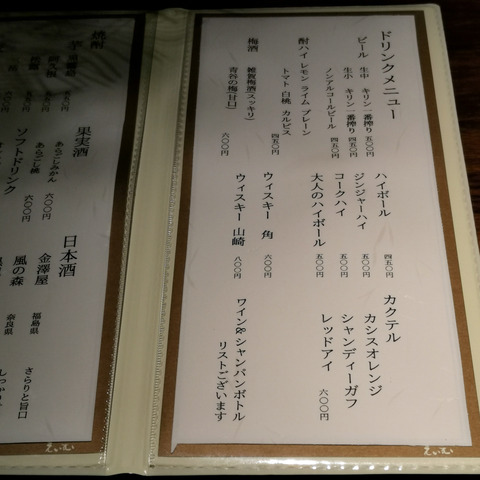 ドリンクメニュー
ビール
生中 キリン一番搾り 五〇〇円
生小 キリン一番搾り
ノンアルコールビール 四五〇円
酎ハイ
レモン ライム プレーン
トマト 白桃 カルピス
四五〇円
梅酒
雑賀梅酒(スッキリ)
青谷の梅(甘口)
六〇〇円
ハイボール 四五〇円
ジンジャーハイ 五〇〇円
コークハイ 五〇〇円
大人のハイボール 五〇〇円
ウィスキー 角 六〇〇円
ウィスキー 山崎 八〇〇円
カクテル
カシスオレンジ
シャンディーガフ
レッドアイ 六〇〇円
ワイン&シャンパンボトル
リストございます
えいむ
焼酎
芋
果実酒
あらごしみかん
あらごし桃 六〇〇円
ソフトドリンク
日本酒
金澤屋 福島県 さらりと旨口
風の森 奈良県
えいむ